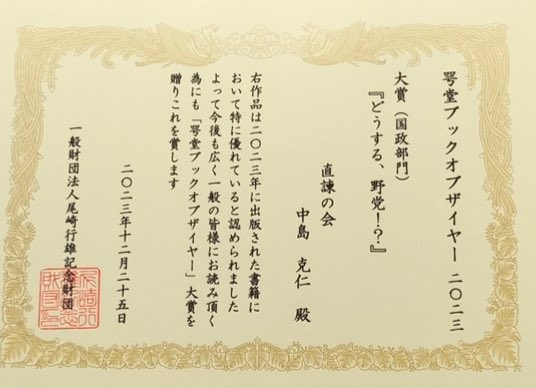 咢堂ブックオブザイヤー 二〇二三
大賞（国政部門）
『どうする、野党！？』
直諫の会
中島 克仁 殿
右作品は二〇二三年に出版された書籍に
おいて特に優れていると認められました
よって今後も広く一般の皆様にお読み頂く
為にも「咢堂ブックオブザイヤー」大賞を
贈りこれを賞します
二〇二三年十二月二十五日
一般財団法人尾崎行雄記念財団